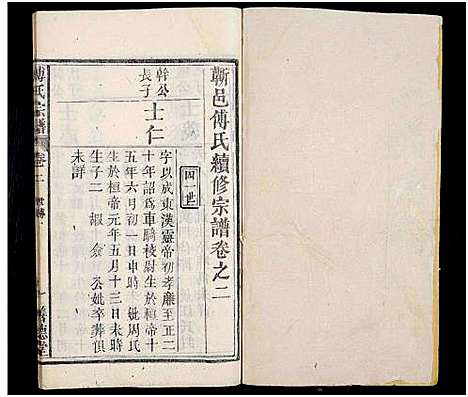 蘄邑傅氏續修宗譜卷之二
四一世
幹公長子
士仁
字以成東漢靈帝初孝廉至正二
十年詔為車騎稜尉生於桓帝十
五年六月初一日申時 妣周氏
生於桓帝元年五月十三日未時
生子二 嘏 僉 公妣卒葬俱
未詳
傅氏宗譜
卷二
一 善德堂